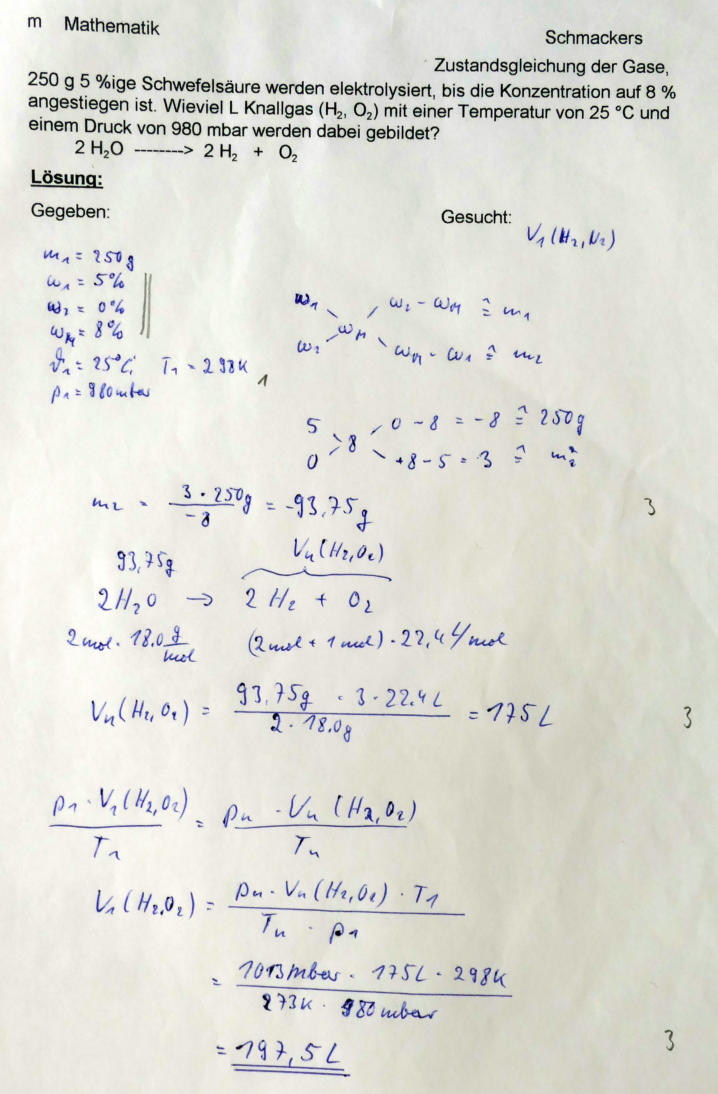 m Mathematik
Schmackers
Zustandsgleichung der Gase,
250 g 5 %ige Schwefelsäure werden elektrolysiert, bis die Konzentration auf 8 %
angestiegen ist. Wieviel L Knallgas (H₂, O₂) mit einer Temperatur von 25 °C und
einem Druck von 980 mbar werden dabei gebildet?
2 H₂O --------> 2 H₂ + O₂
Lösung:
Gegeben:
Gesucht:
V₁(H₂,N₂)
m₁ = 250g
ω₁ = 5%
ω₂ = 0%
ω_M = 8%
ϑ₁ = 25°C; T₁ = 298K
1
p₁ = 980mbar
ω₁ ω₂ - ω_M ≙ m₁
ω_M
ω₂ ω_M - ω₁ ≙ m₂
5 0 - 8 = -8 ≙ 250g
8
0 +8 - 5 = 3 ≙ m₂
m₂ = 3 · 250g / -8 = -93,75g
3
93,75g Vₙ(H₂,O₂)
2H₂O → 2 H₂ + O₂
2mol · 18.0 g/mol (2mol + 1mol) · 22,4 L/mol
Vₙ(H₂,O₂) = 93,75g · 3 · 22.4L / 2 · 18.0g = 175L
3
p₁ · V₁(H₂,O₂) / T₁ = pₙ · Vₙ(H₂,O₂) / Tₙ
V₁(H₂,O₂) = pₙ · Vₙ(H₂,O₂) · T₁ / Tₙ · p₁
= 1013mbar · 175L · 298K / 273K · 980mbar
= 197,5L
3